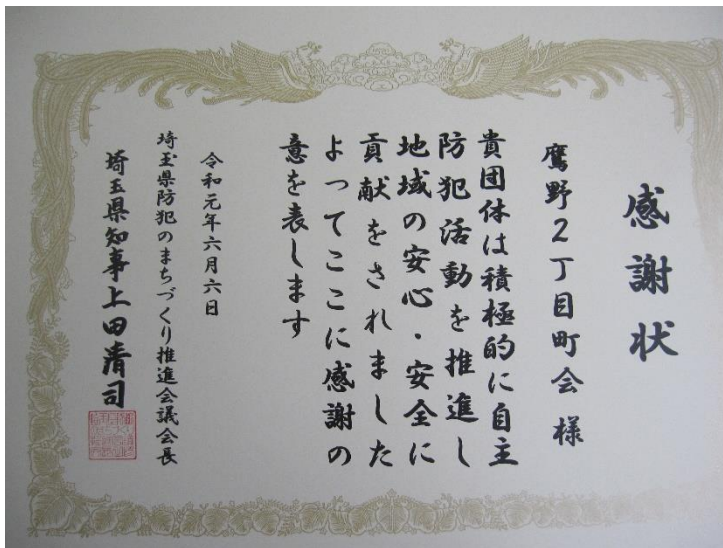 感謝状
鷹野２丁目町会 様
貴団体は積極的に自主
防犯活動を推進し
地域の安心・安全に
貢献をされました
よってここに感謝の
意を表します
令和元年六月六日
埼玉県防犯のまちづくり推進会議会長
埼玉県知事上田清司